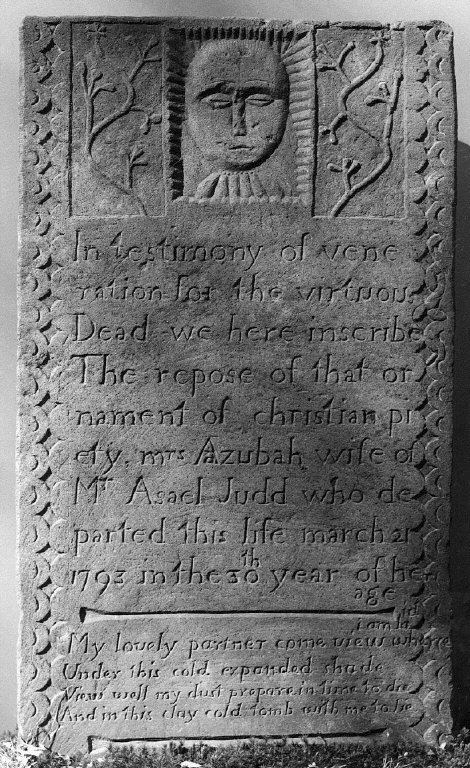 In testimony of vene
ration for the virtuous
Dead we here inscribe
The repose of that or
nament of christian pi
ety, mrs Azubah wife of
Mr Asael Judd who de
parted this life march 21
1793 in the 30th year of her
age
i am laid
My lovely partner come view where
Under this cold expanded shade
View well my dust prepare in time to die
And in this clay cold tomb with me to lie